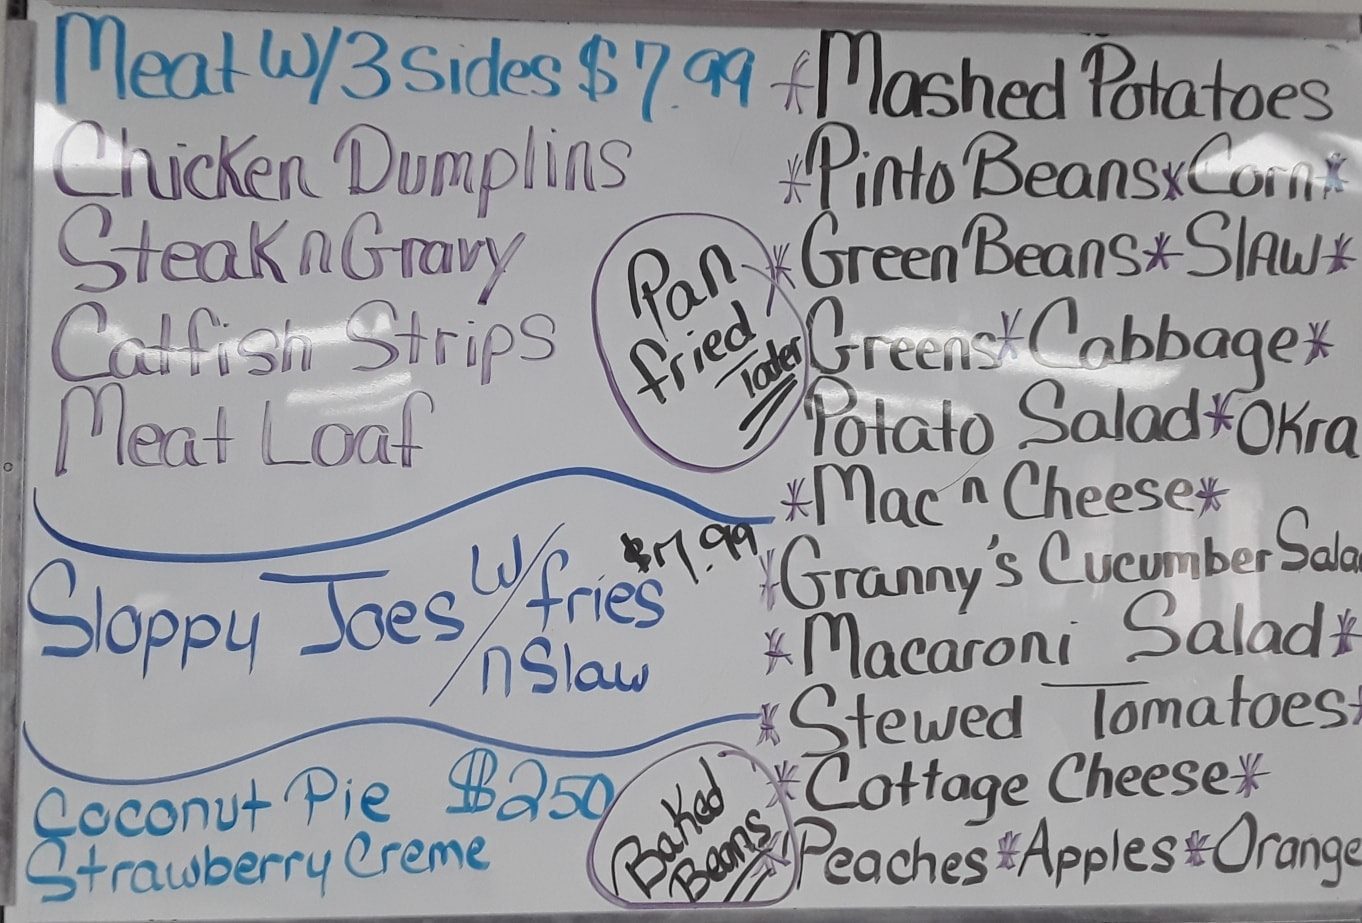 Meat W/3 Sides $7.99
Chicken Dumplins
Steak n Gravy
Catfish Strips
Meat Loaf
Sloppy Joes W/fries
n Slaw
$7.99
Coconut Pie $250
Strawberry Creme
Pan
fried
Tader
Baked
Beans
*Mashed Potatoes
*Pinto Beans*Corn*
*Green Beans*Slaw*
Greens*Cabbage*
Potato Salad*Okra
*Mac n Cheese*
*Granny's Cucumber Sala
*Macaroni Salad*
*Stewed Tomatoes*
*Cottage Cheese*
*Peaches*Apples*Orange